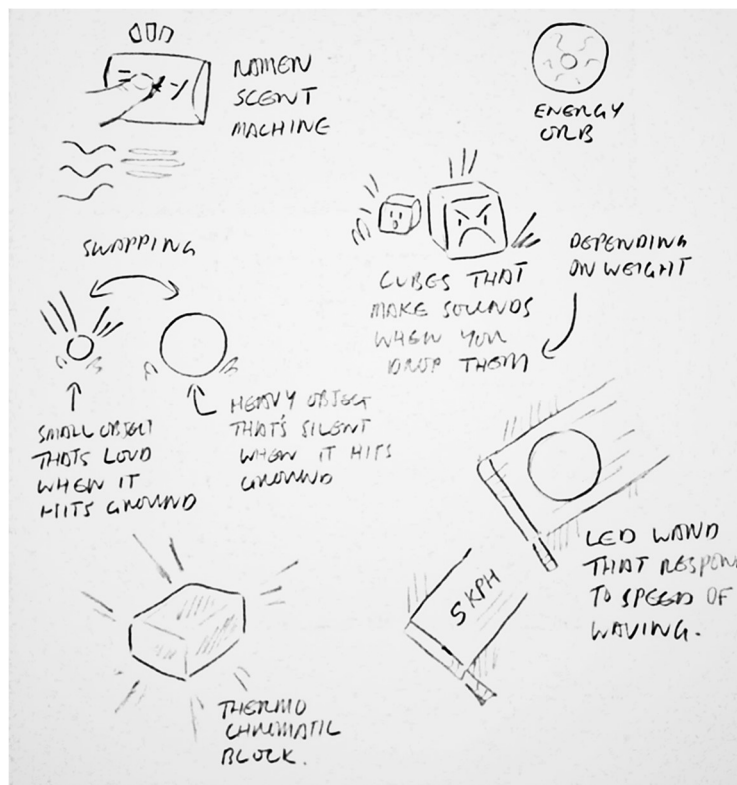 RAMEN
SCENT
MACHINE
ENERGY
ORB
SWAPPING
CUBES THAT
MAKE SOUNDS
WHEN YOU
DROP THEM
DEPENDING
ON WEIGHT
SMALL OBJECT
THATS LOUD
WHEN IT
HITS GROUND
HEAVY OBJECT
THAT'S SILENT
WHEN IT HITS
GROUND
5 KPH
LED WAND
THAT RESPON
TO SPEED OF
WAVING.
THERMO
CHROMATIC
BLOCK.